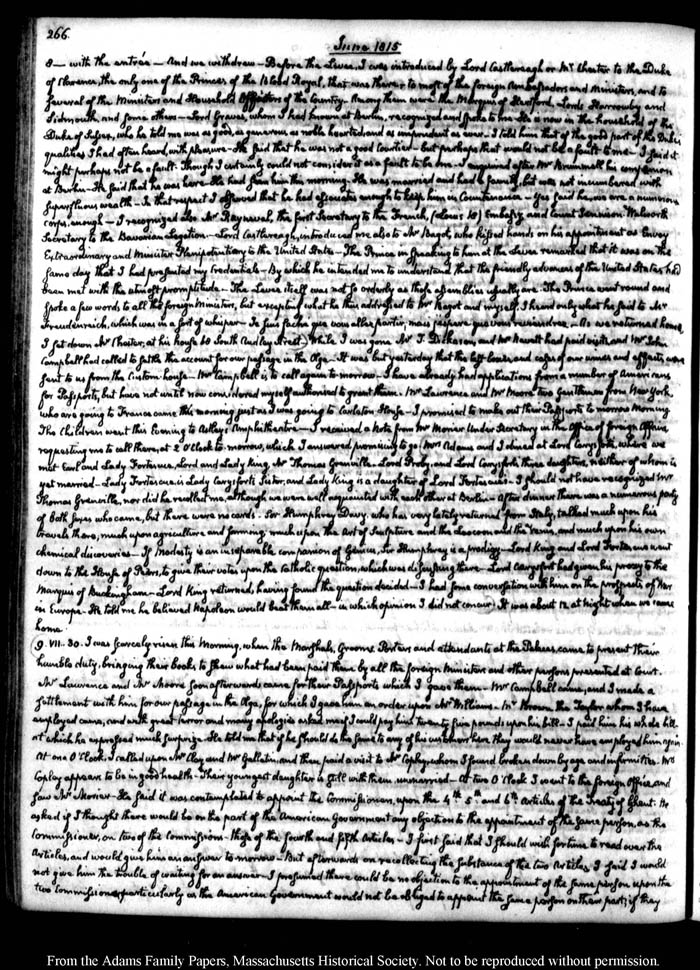 266.
June 1815
8— with the entrée — And we withdrew — Before the Levee, I was introduced by Lord Castlereagh or Mr Chester to the Duke
of Clarence, the only one of the Princes of the Blood Royal, that was there; to most of the foreign Ambassadors and Ministers, and to
several of the Ministers and Household Officers of the Country. Among them were the Marquis of Hertford, Lords Harrowby and
Sidmouth, and some others — Lord Graves, whom I had known at Berlin, recognized and spoke to me. He is now in the household of the
Duke of Sussex, who he told me was as good, as generous, as noble hearted and as imprudent as ever — I told him that of the good part of the Duke's
qualities I had often heard, with pleasure — He said that he was not a good Courtier — but perhaps that would not be a fault to me — I said it
might perhaps not be a fault. Though I certainly could not consider it as a fault to be one — I enquired after Mr Brummell his companion
at Berlin — He said that he was here — He had seen him this morning — He was married and had a family, but was not incumbered with
superfluous wealth — In that respect I observed that he had associates enough to keep him in Countenance — Yes said he, we are a numerous
corps, enough — I recognized also Mr Rayneval, the first Secretary to the French, (Louis 18) Embassy, and Count Jennison Walworth
Secretary to the Bavarian Legation — Lord Castlereagh, introduced me also to Mr Bagot, who kissed hands on his appointment as Envoy
Extraordinary and Minister Plenipotentiary to the United States — The Prince in speaking to him at the Levee remarked that it was on the
same day that I had presented my credentials — By which he intended me to understand that the friendly advances of the United States had
been met with the utmost promptitude — The Levee itself was not so orderly as those assemblies usually are. The Prince went round and
spoke a few words to all the foreign Ministers, but excepting what he thus addressed to Mr Bagot and myself, I heard only what he said to Mr
Freudenreich, which was in a sort of whisper — Je suis faché que vous allez partir, mais j'espere que vous reviendrez — As we returned home
I set down Mr Chester, at his house 60 South Audley Street — While I was gone Mr J. Dickason and Mr Nevett had paid visits, and Mr John
Campbell had called to settle the account for our passage in the Olga — It was but yesterday that the last boxes and cases of our wines and effects, were
sent to us from the Custom-house — Mr Campbell is to call again to-morrow. I have already had applications from a number of Americans
for Passports, but have not until now considered myself authorized to grant them. Mr Lawrence and Mr Moore two Gentlemen from New York
who are going to France came this morning just as I was going to Carleton House — I promised to make out their Passports to morrow Morning
The Children went this Evening to Astley's Amphitheatre — I received a Note from Mr Morier Under Secretary in the Office of foreign Affairs
requesting me to call there, at 2 O'Clock to-morrow, which I answered promising to go. Mrs Adams and I dined at Lord Carysfort's, where we
met Earl and Lady Fortescue, Lord and Lady King, Mr Thomas Grenville, Lord Proby, and Lord Carysfort's three daughters, neither of whom is
yet married — Lady Fortescue is Lady Carysfort's Sister, and Lady King is a daughter of Lord Fortescue's. I should not have recognized Mr
Thomas Grenville, nor did he recollect me, although we were well acquainted with each other at Berlin — After dinner there was a numerous party
of both sexes who came, but there were no cards. Sir Humphrey Davy, who has very lately returned from Italy, talked much upon his
travels there, much upon agriculture and farming, much upon the Art of Sculpture and the Laocoon and the Venus, and much upon his own
chemical discoveries — If Modesty is an inseparable companion of Genius, Sir Humphrey is a prodigy — Lord King and Lord Fortescue went
down to the House of Peers, to give their votes upon the Catholic question, which was discussing there — Lord Carysfort had given his proxy to the
Marquis of Buckingham — Lord King returned, having found the question decided — I had some conversation with him on the prospects of War
in Europe — He told me he believed Napoleon would beat them all — in which opinion I did not concur. It was about 12 at Night when we came
home.
9. VII:30. I was scarcely risen this Morning, when the Marshals, Grooms, Porters and attendants at the Palaces, came to present their
humble duty, bringing their books, to shew what had been paid them by all the foreign Ministers and other persons presented at Court.
Mr Lawrence and Mr Moore soon afterwards came for their Passports which I gave them — Mr Campbell came, and I made a
settlement with him for our passage in the Olga, for which I gave him an order upon Mr Williams. Mr Brown, the Taylor whom I have
employed came, and with great terror and many apologies asked me if I could pay him twenty five pounds upon his bill — I paid him his whole bill
at which he expressed much surprize. He told me that if he should do the same to any of his customers here they would never have employed him again.
At one O'Clock I called upon Mr Clay and Mr Gallatin, and then paid a visit to Mr Copley, whom I found broken down by age and infirmities. Mrs
Copley appears to be in good health — Their youngest daughter is still with them unmarried — At two O'Clock I went to the foreign Office, and
saw Mr Morier — He said it was contemplated to appoint the Commissioners, upon the 4th 5th and 6th Articles of the Treaty of Ghent. He
asked if I thought there would be on the part of the American Government any objection to the appointment of the same person, as the
Commissioner, on two of the Commissions — those of the fourth and fifth Articles — I first said that I should wish for time to read over the
Articles, and would give him an answer to-morrow — But afterwards on recollecting the substance of the two Articles, I said I would
not give him the trouble of waiting for an answer — I presumed there could be no objection to the appointment of the same person upon the
two Commissions particularly as the American Government would not be obliged to appoint the same person on their part, if they
From the Adams Family Papers, Massachusetts Historical Society. Not to be reproduced without permission.